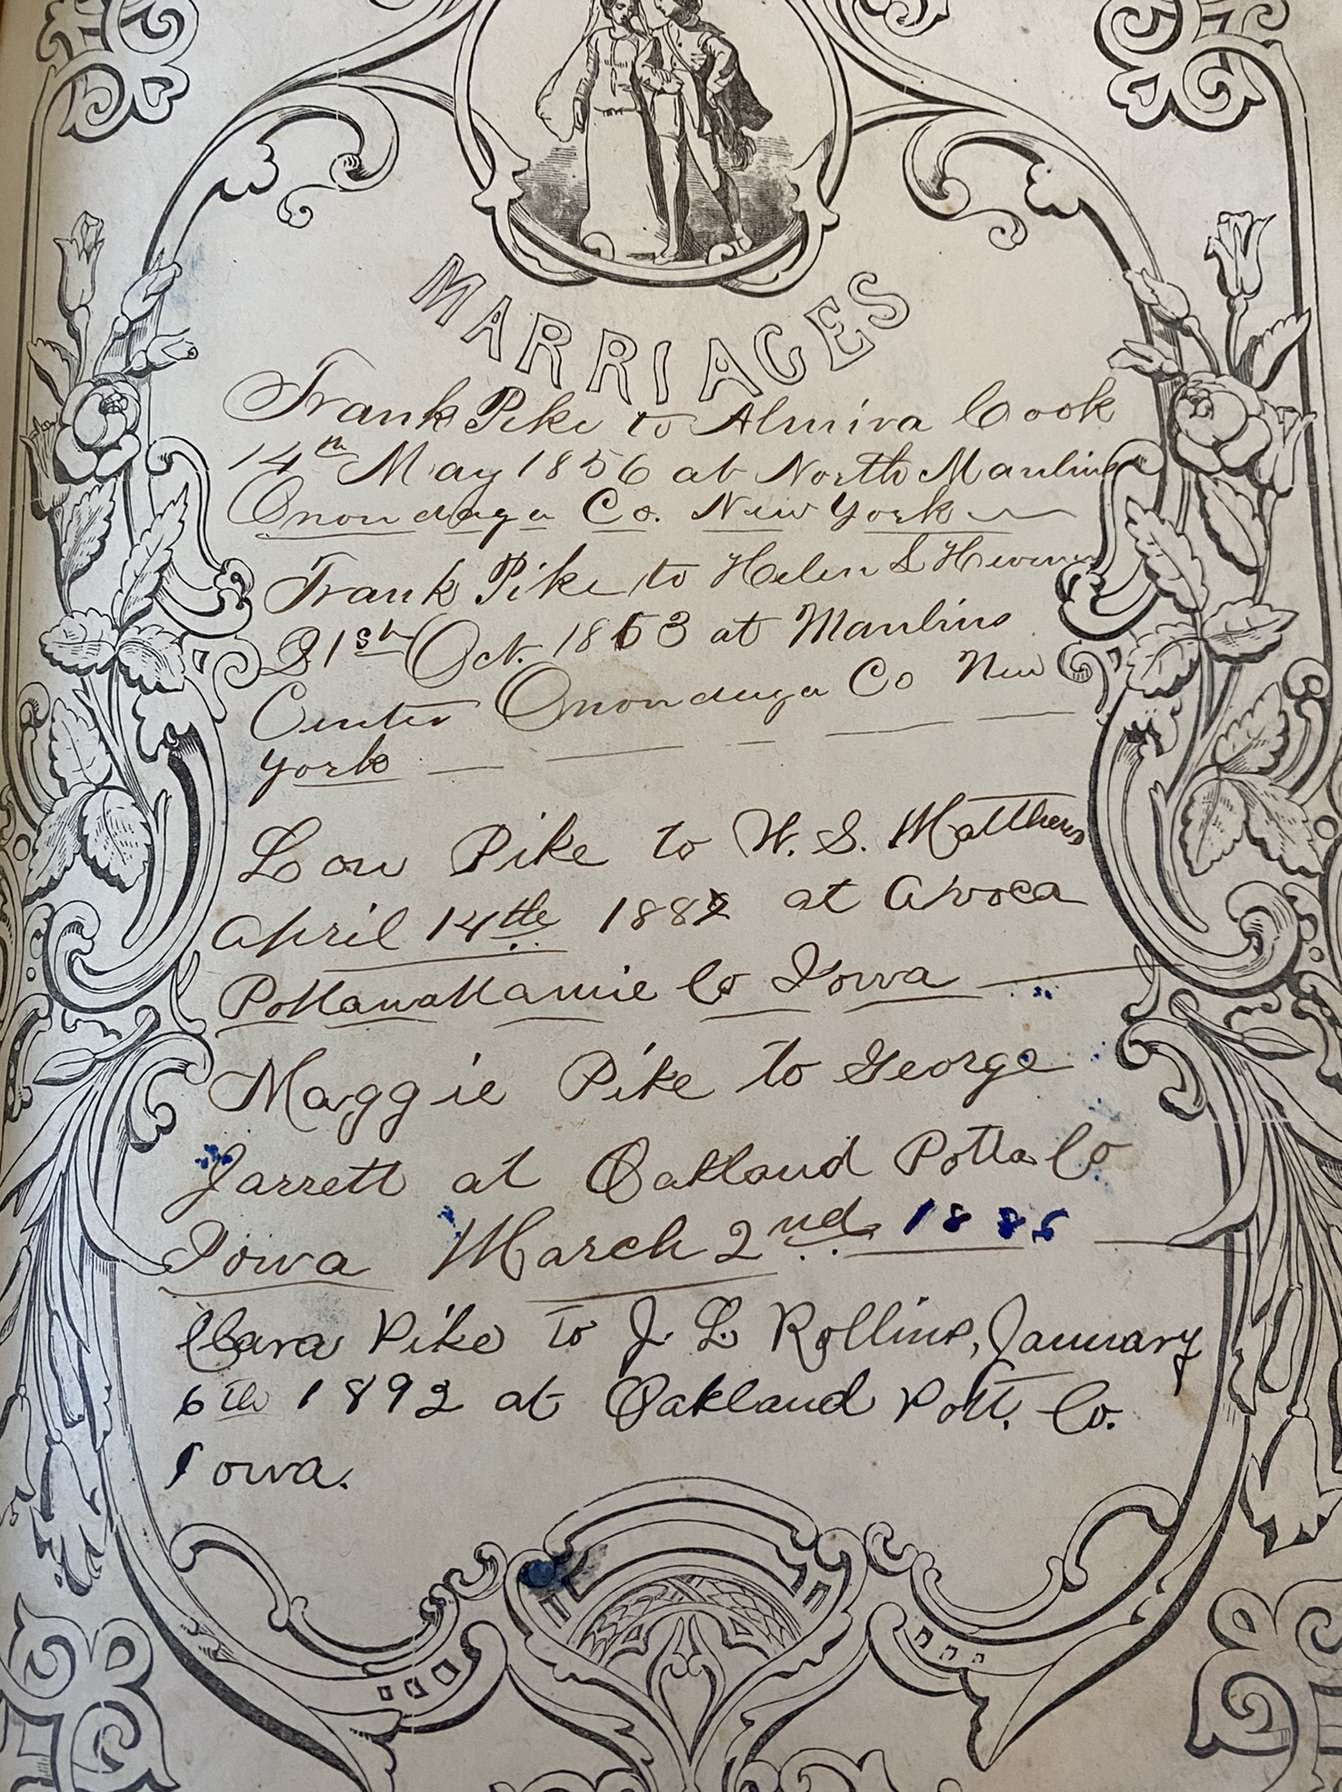 MARRIAGES
Frank Pike to Almira Cook
14th May 1856 at North Manlius
Onondaga Co. New York
Frank Pike to Helen S
21st Oct. 1863 at Manlius
Center Onondaga Co New
York
Lou Pike to W. S. Matthews
April 14th 1882 at Avoca
Pottawattamie Co Iowa
Maggie Pike to George
Jarrett at Oakland Potta Co
Iowa March 2nd 1885
Clara Pike to J. L. Rollins, January
6th 1892 at Oakland Pott. Co.
Iowa.